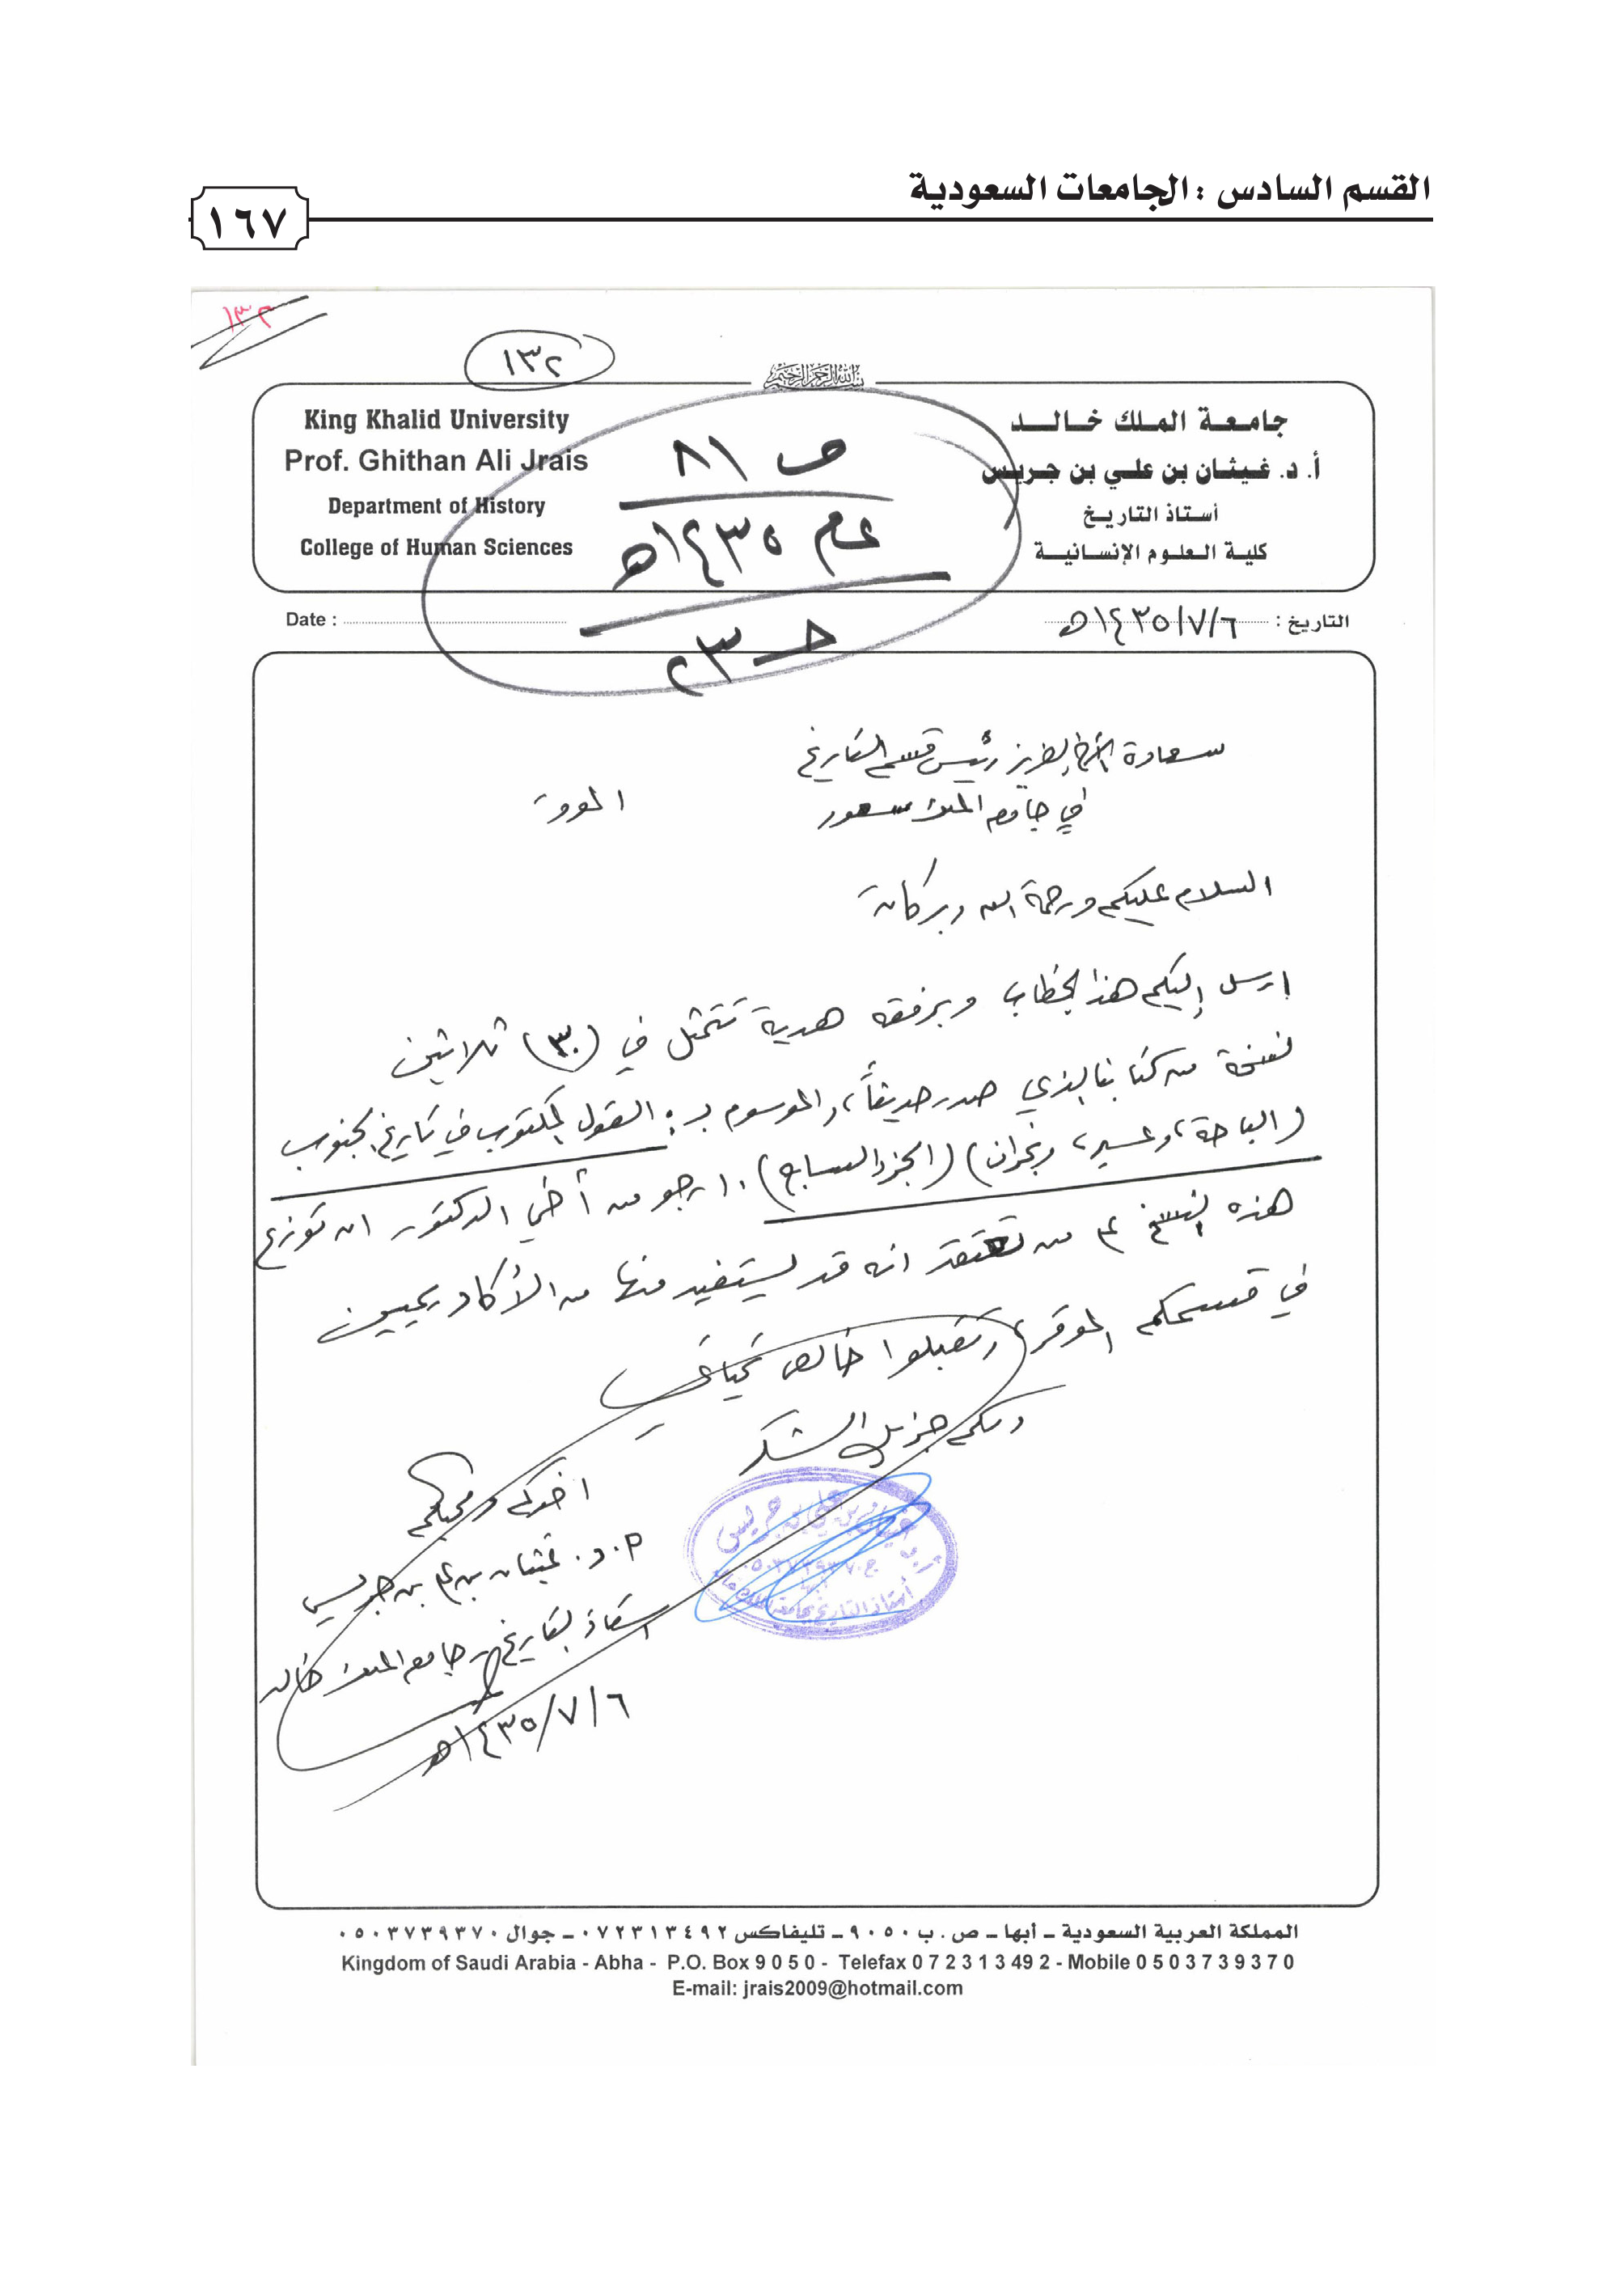 القسم السادس : الجامعات السعودية
١٦٧
١٣٢
بسم الله الرحمن الرحيم
King Khalid University
Prof. Ghithan Ali Jrais
Department of History
College of Human Sciences
ص ٨١
عام ١٤٣٥هـ
جـ ٢٣
جامعة الملك خالد
أ. د. غيثان بن علي بن جريس
أستاذ التاريخ
كلية العلوم الإنسانية
Date :
التاريخ : ١٤٣٥/٧/٦هـ
سعادة الأخ العزيز رئيس قسم التاريخ
في جامعة الملك سعود الموقر
السلام عليكم ورحمة الله وبركاته
ارسل إليكم هذا الخطاب وبرفقه هدية تتمثل في (٣٠) ثلاثين
نسخة من كتابنا الذي صدر حديثاً، والموسوم بـ : القول المكتوب في تاريخ الجنوب
(الباحة، وعسير، ونجران) (الجزء السابع). ارجو من أخي الدكتور ان توزع
هذه النسخ على من تعتقد انه قد يستفيد منها من الأكاديميين
في قسمكم الموقر، وتقبلوا خالص تحياتي
ولكم جزيل الشكر
اخوكم ومحبكم
أ.د. غيثان بن علي بن جريس
استاذ التاريخ بجامعة الملك خالد
١٤٣٥/٧/٦هـ
غيثان بن علي بن جريس
أستاذ التاريخ بجامعة الملك خالد
المملكة العربية السعودية ـ أبها ـ ص . ب ٩٠٥٠ ـ تليفاكس ٠٧٢٣١٣٤٩٢ ـ جوال ٠٥٠٣٧٣٩٣٧٠
Kingdom of Saudi Arabia - Abha - P.O. Box 9 0 5 0 - Telefax 0 7 2 3 1 3 49 2 - Mobile 0 5 0 3 7 3 9 3 7 0
E-mail: jrais2009@hotmail.com